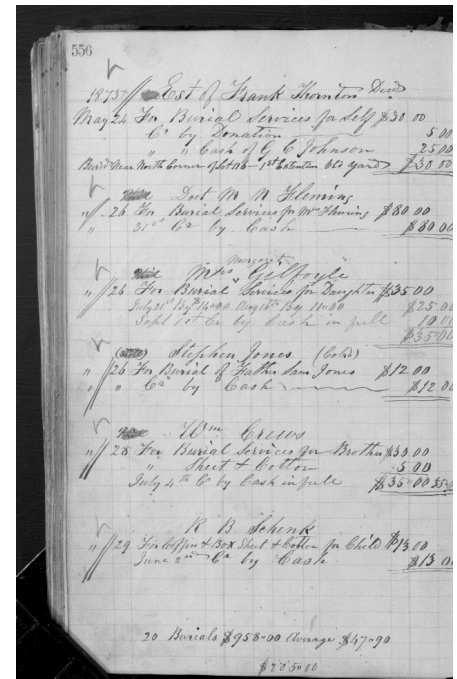 556
1873 Est of Frank Thornton Decd
May 24 For Burial Services for Self $30 00
Cr by Donation 5 00
" " Cash of G C Johnson 25 00
Bur'd Near North Corner of Lot 126 - 1st Extention Old Yard $30 00
Doct M N Fleming
" 26 For Burial Services for Mrs Fleming $80 00
" 31st Cr by Cash $80 00
Margaret
Mrs Gilfoyle
" 26 For Burial Services for Daughter $35 00
July 21st By 14=00 Aug 16th By 11=00 $25 00
Sept 1st Cr by Cash in full 10 00
$35=00
Stephen Jones (Cold)
" 26 For Burial of Father Sam Jones $12 00
" " Cr by Cash $12 00
Wm Crews
" 28 For Burial Services for Brother $30 00
" Sheet & Cotton 5 00
July 4th Cr by Cash in full $35=00 35=00
R B Schenk
" 29 For Coffin & Box Sheet & Cotton for Child $13 00
June 2nd Cr by Cash $13 00
20 Burials $958=00 Average $47=90
$205=00